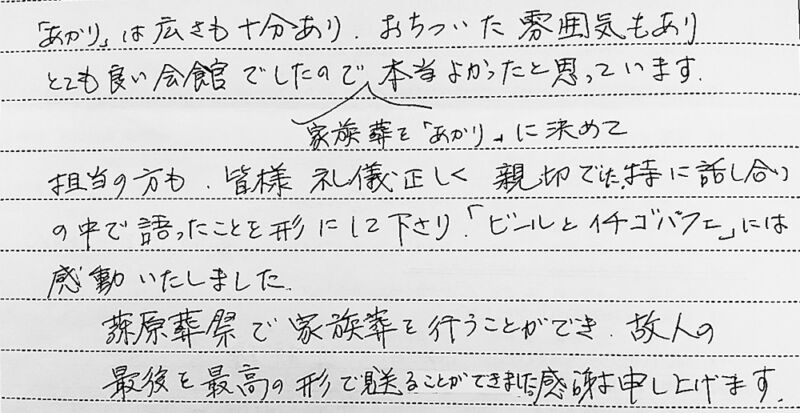 「あかり」は広さも十分あり、おちついた雰囲気もあり
とても良い会館でしたので本当よかったと思っています。
家族葬を「あかり」に決めて
担当の方も、皆様 礼儀正しく 親切でした。特に話し合い
の中で語ったことを形にして下さり、「ビールとイチゴパフェ」には
感動いたしました。
藤原葬祭で家族葬を行うことができ、故人の
最後を最高の形で見送ることができました。感謝申し上げます。